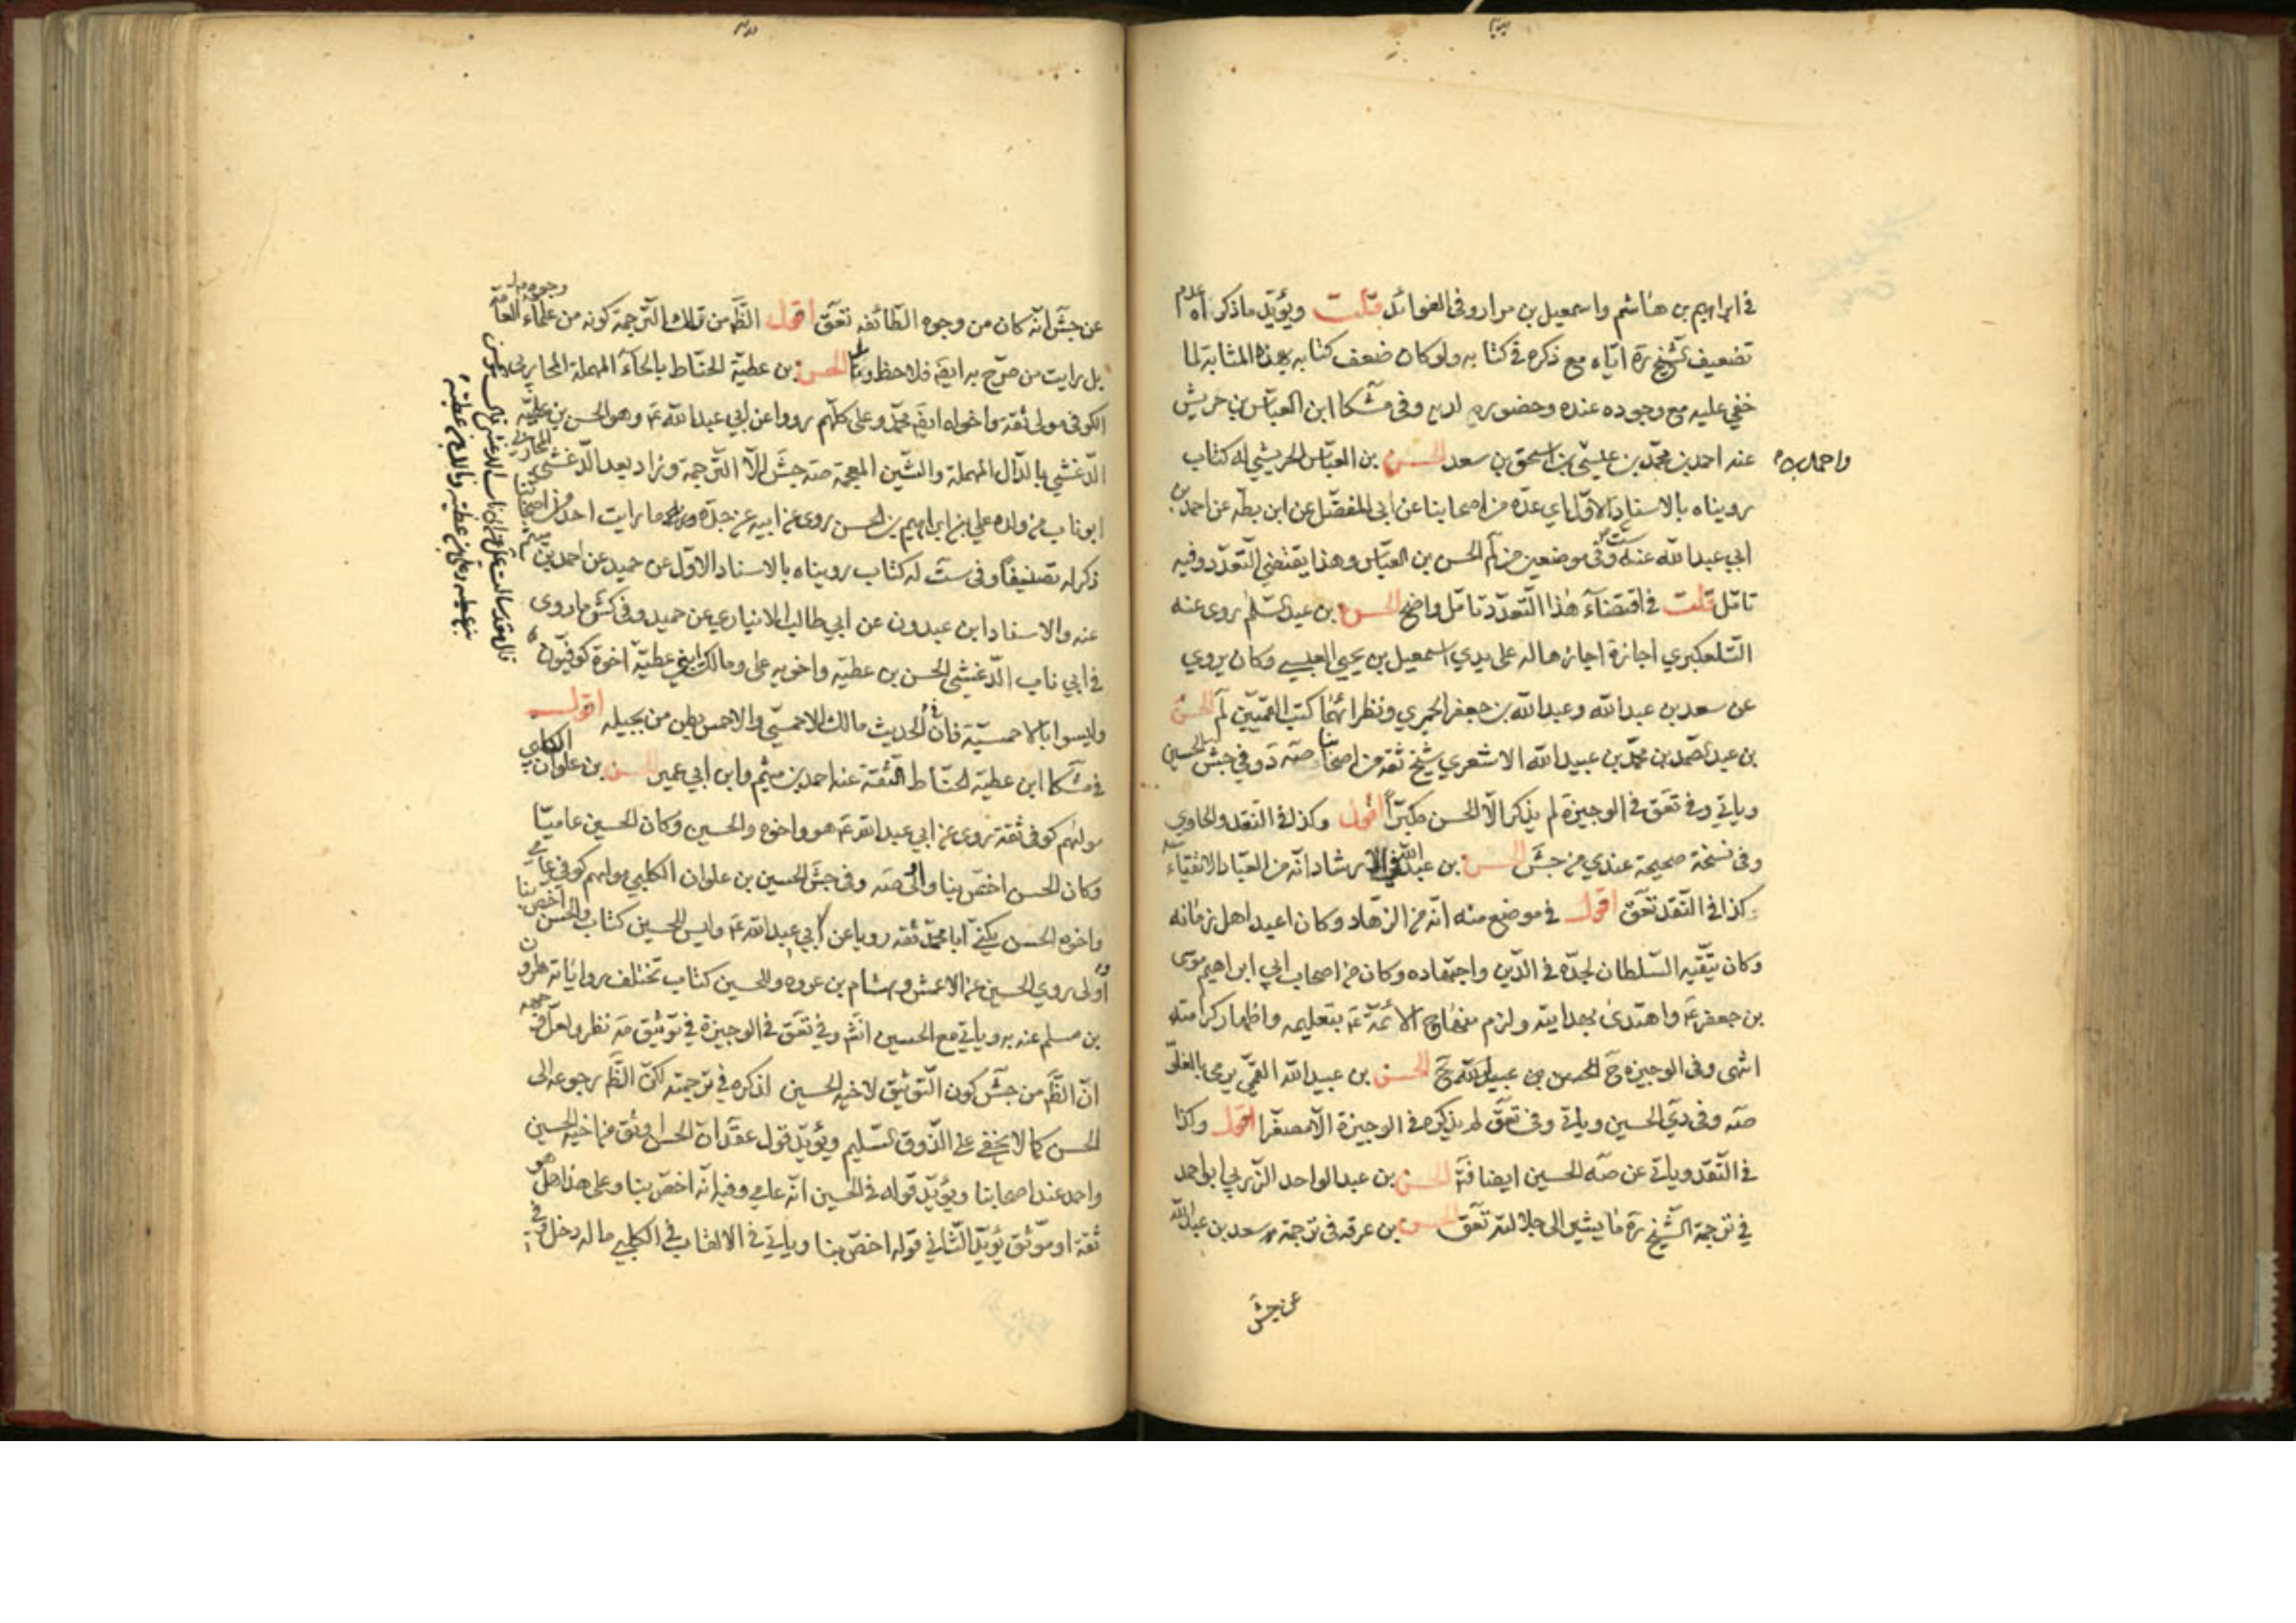 في ابراهيم بن هاشم واسمعيل بن مرار وفى الفوائد قلت ويؤيد ما ذكراه عدم
تضعيف الشيخ ره اياه مع ذكره في كتابه ولو كان ضعف كتابه بهذه المثابة لما
خفي عليه مع وجوده عنده وحضوره لديه وفى مشكا ابن العباس بن حريش
عنه احمد بن محمد بن عيسى بن اسحق بن سعد الحسن بن العباس الحريشي له كتاب
واحمد بن
رويناه بالاسناد الاول اي عدة من اصحابنا عن ابى المفضل عن ابن بطة عن احمد بن
ابي عبد الله عنه ست وفى موضعين من لم الحسن بن العباس وهذا يقتضى التعدد وفيه
تامل قلت في اقتضاء هذا التعدد تامل واضح الحسن بن عبد السلم روى عنه
التلعكبري اجازة اجازها له على يدي اسمعيل بن يحيى العبسي وكان يروي
عن سعد بن عبد الله وعبد الله بن جعفر الحميري ونظرائهما كتب القميين لم الحسن
بن عبد الصمد بن محمد بن عبيد الله الاشعري شيخ ثقة من اصحابنا صه د وفي جش الحسين
وياتي وفى تعق في الوجيزة لم يذكر الا الحسن مكبرا اقول وكذا في النقد والحاوي
وفى نسخة صحيحة عندي من جش الحسن بن عبد الله في الارشاد انه من العباد الاتقياء
كذا في النقد تعق اقول في موضع منه انه من الزهاد وكان اعبد اهل زمانه
وكان يتقيه السلطان لجده في الدين واجتهاده وكان من اصحاب ابي ابراهيم موسى
بن جعفر ع واهتدى بهدايته ولزم منهاج الائمة ع بتعليمه واظهار كرامته
انتهى وفى الوجيزة ح الحسن بن عبيد الله ح الحسن بن عبيد الله القمي يرمى بالغلو
صه وفى دي الحسين وياتي وفى تعق لم يذكره في الوجيزة الا مصغرا اقول وكذا
في النقد وياتي عن صه الحسين ايضا فتد الحسن بن عبد الواحد الزربي ابو احمد
في ترجمة الشيخ ره ما يشير الى جلالته تعق الحسن بن عرفه في ترجمة سعد بن عبد الله
عن جش
عن جش انه كان من وجوه الطائفه تعق اقول الظ من تلك الترجمة كونه من علماء العامة
وجوه
بل رايت من صرح به ايضا فلاحظ الحسن بن عطية الحناط بالحاء المهملة المحاربي
الكوفى مولى ثقة واخواه ايض محمد وعلى كلهم رووا عن ابي عبد الله ع وهو الحسن بن عطية
الدغشي بالدال المهملة والشين المعجمة صه جش الا الترجمة وزاد بعد الدغشى المحاربي
ابو ناب من ولده علي بن ابراهيم بن الحسن روى عن ابيه عن جده ما رايت احدا من اصحابنا
ذكر له تصنيفا وفى ست له كتاب رويناه بالاسناد الاول عن حميد عن احمد بن ميثم
عنه والاسناد ابن عبدون عن ابي طالب الانباري عن حميد وفى كش ما روى
في ابي ناب الدغشي الحسن بن عطية واخويه على ومالك ابني عطية اخوة كوفيون
وليسوا بالاحمسية فان في الحديث مالك الاحمسي والاحمس بطن من بجيله اقول
في مشكا ابن عطية الحناط الثقة عنه احمد بن ميثم وابن ابي عمير الحسن بن علوان الكلبي
مولهم كوفى ثقة روى عن ابي عبد الله ع هو واخوه والحسين وكان الحسين عاميا
وكان الحسن اخص بنا واولى صه وفى جش الحسين بن علوان الكلبي مولهم كوفي عامي
واخوه الحسن يكنى ابا محمد ثقه رويا عن ابي عبد الله ع وليس للحسين كتاب والحسن اخص بنا
واولى روى الحسين عن الاعمش وهشام بن عروه وللحسين كتاب تختلف رواياته هارون
بن مسلم عنه به وياتي مع الحسين انش وفي تعق في الوجيزة في توثيقه نظر ولعل وجهه
ان الظ من جش كون التوثيق لاخيه الحسين اذ ذكره في ترجمته لكن الظ رجوعه الى
الحسن كما لا يخفى على الذوق السليم ويؤيد قول عقد ان الحسن اوثق من اخيه الحسين
واحمد عند اصحابنا ويؤيد قوله في الحسين انه عامي وفيه انه اخص بنا وعلى هذا هل هو
ثقة او موثق يؤيد الثاني قوله اخص بنا وياتي في الالقاب في الكلبي ما له دخل فيه